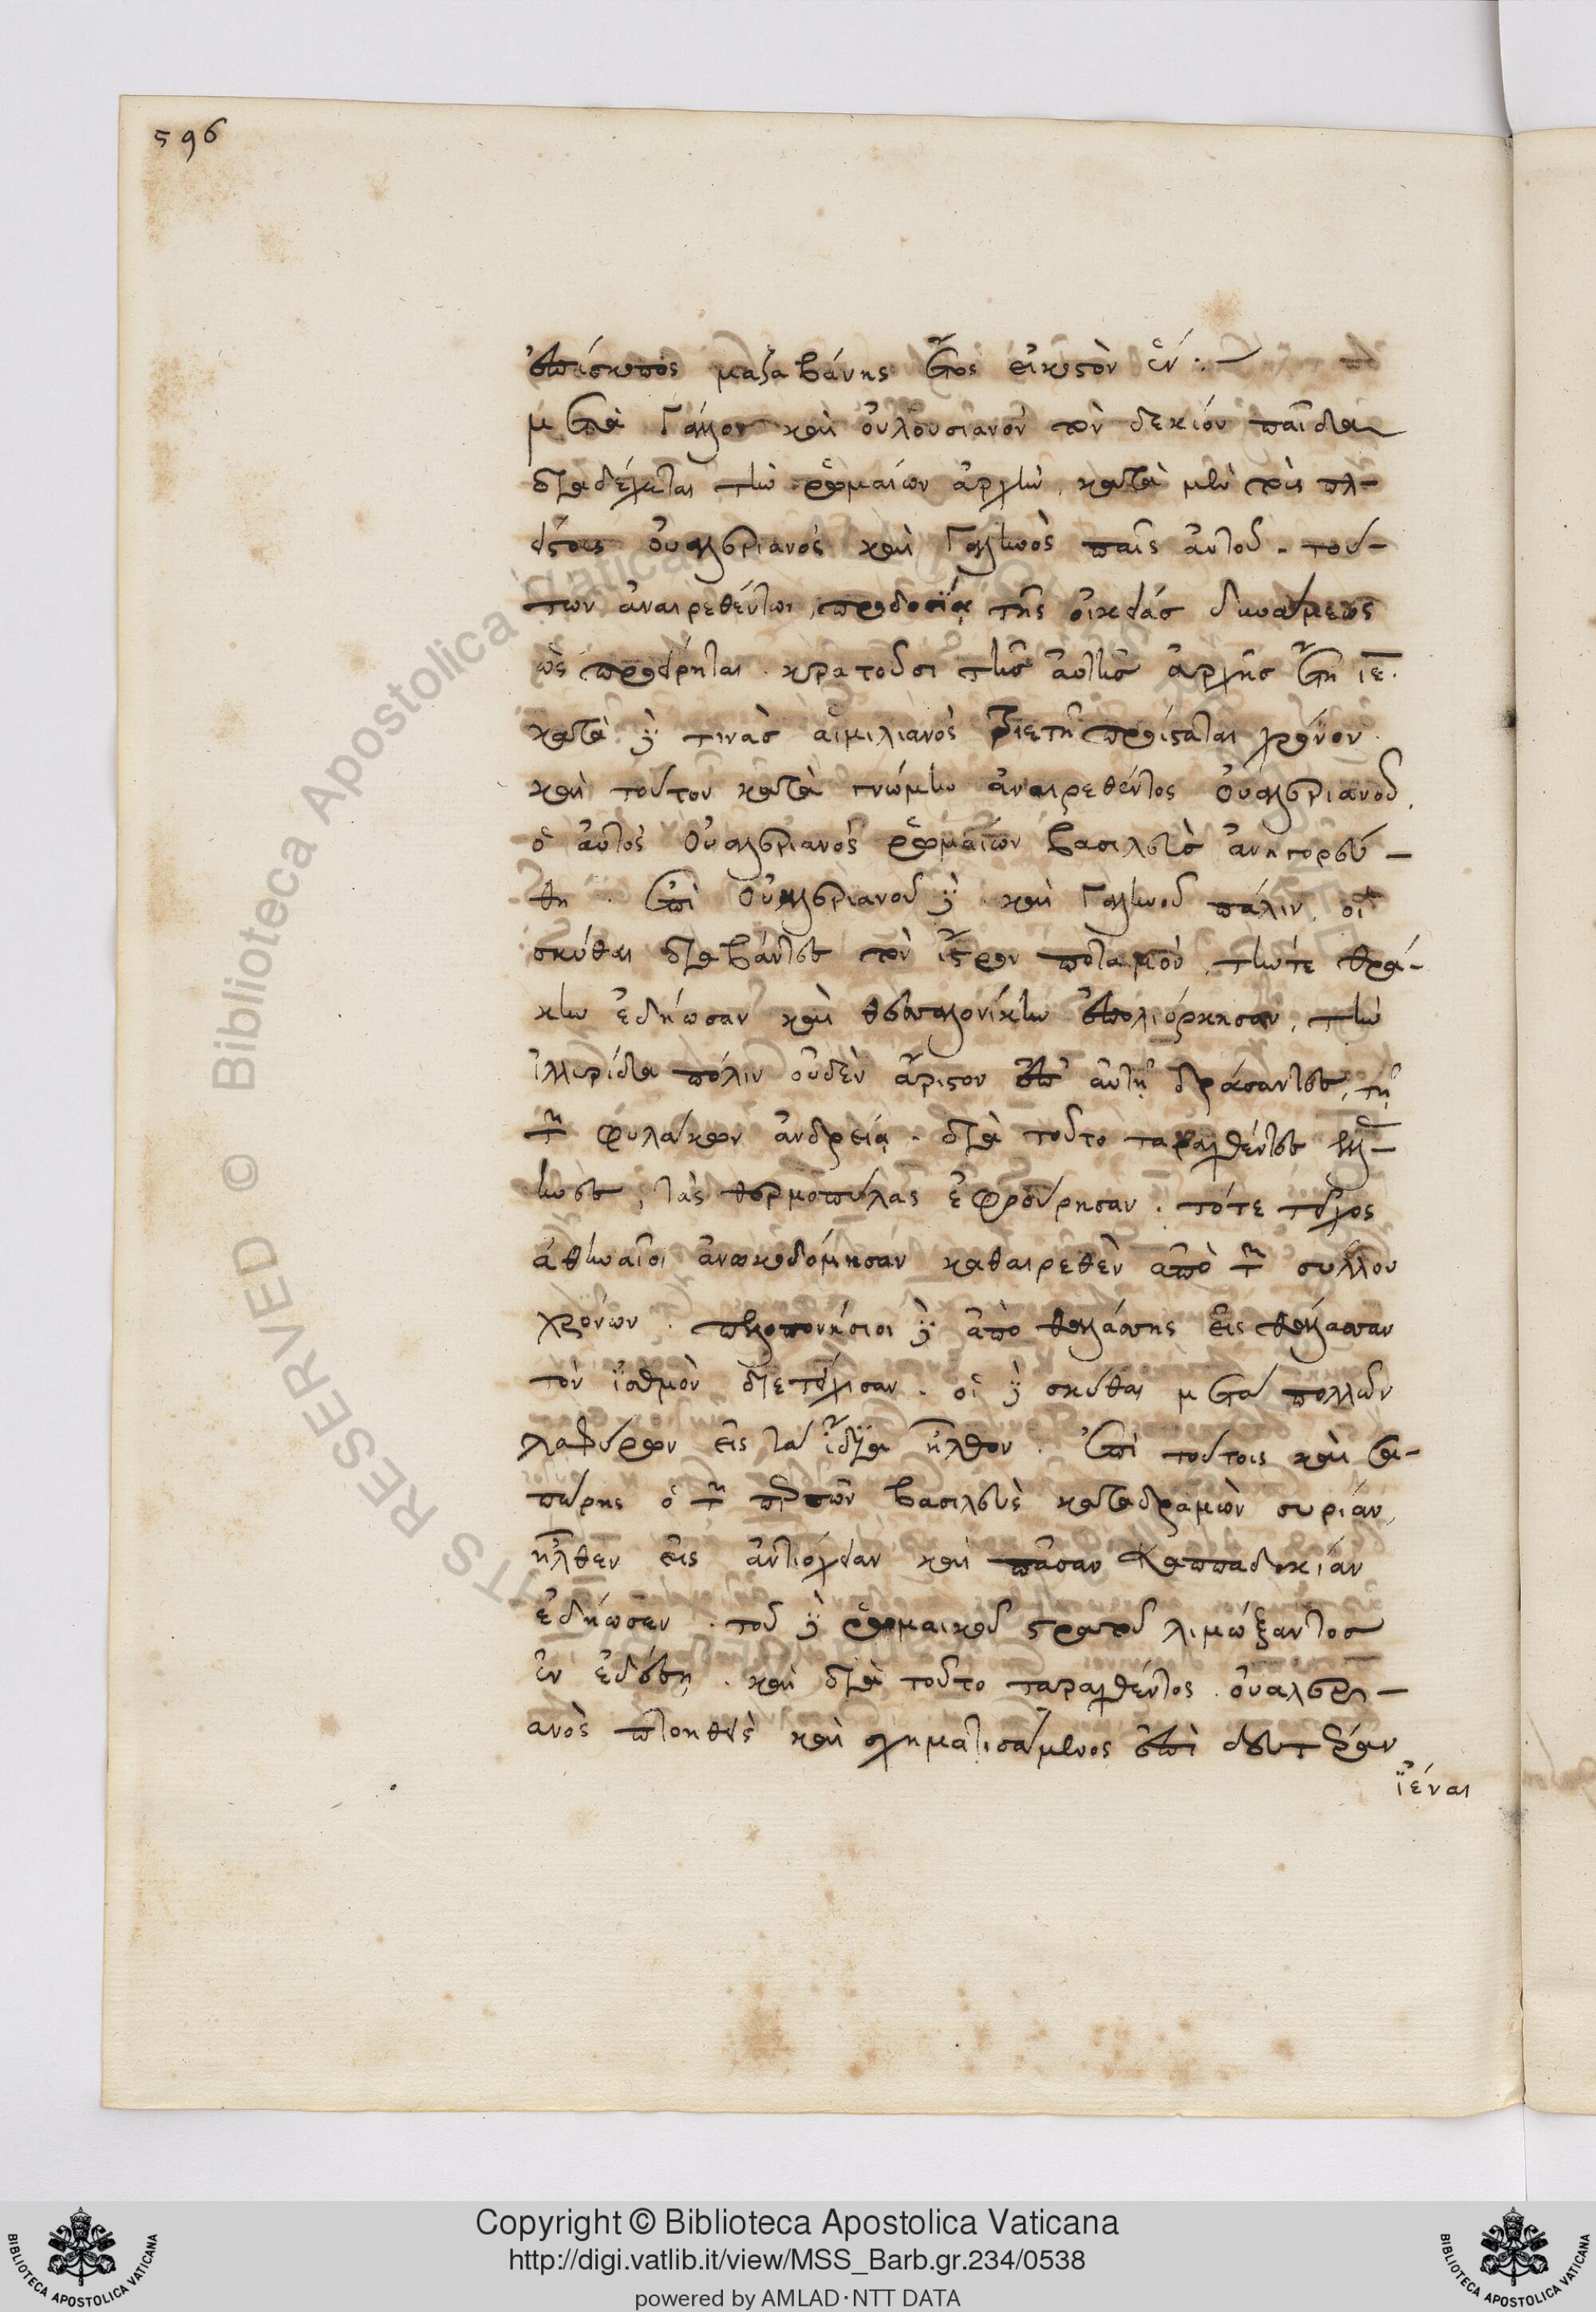 596
ἐπίσκοπος μαζαβάνης ἔτος εἰκοστὸν ἕν :~
μετὰ Γάλλον καὶ οὐλουσιανὸν τὸν δεκίου παῖδα
διαδέχεται τὴν ῥωμαίων ἀρχὴν, κατὰ μὲν τοὺς πλ-
είστους οὐαλεριανὸς καὶ Γαλιηνὸς παῖς αὐτοῦ. τού-
των ἀναιρεθέντων προδοσίᾳ τῆς οἰκείας δυνάμεως
ὡς προείρηται. κρατοῦσι τῆς αὐτῆς ἀρχῆς ἔτη ιε.
κατὰ δὲ τινὰς αἰμιλιανὸς τριετῆ προΐσταται χρόνον.
καὶ τούτου κατὰ γνώμην ἀναιρεθέντος οὐαλεριανοῦ,
ὁ αὐτὸς οὐαλεριανὸς ῥωμαίων βασιλεὺς ἀνηγορεύ-
θη. ἐπὶ οὐαλεριανοῦ δὲ καὶ Γαλιηνοῦ πάλιν οἱ
σκύθαι διαβάντες τὸν ἴστρον ποταμὸν, τήν τε θρά-
κην ἐδῄωσαν καὶ θεσσαλονίκην ἐπολιόρκησαν, τὴν
ἰλλυρίδα πόλιν οὐδὲν ἄριστον ἐπ' αὐτῇ δράσαντες, τῇ
τῶν φυλάκων ἀνδρείᾳ. διὰ τοῦτο ταραχθέντες ἕλ-
ληνες, τὰς θερμοπύλας ἐφρούρησαν. τότε τεῖχος
ἀθηναῖοι ἀνῳκοδόμησαν καθαιρεθὲν ἀπὸ τῶν συλλου
χρόνων. πελοπονήσιοι δὲ ἀπὸ θαλάσσης εἰς θάλασσαν
τὸν ἰσθμὸν διετείχισαν. οἱ δὲ σκύθαι μετὰ πολλῶν
λαφύρων εἰς τὰ ἴδια ἦλθον. ἐπὶ τούτοις καὶ σα-
πώρης ὁ τῶν περσῶν βασιλεὺς καταδραμὼν συρίαν,
ἦλθεν εἰς ἀντιόχειαν καὶ πᾶσαν Καππαδοκίαν
ἐδῄωσεν. τοῦ δὲ ῥωμαικοῦ στρατοῦ λιμώξαντος
ἐν ἐδέσῃ. καὶ διὰ τοῦτο ταραχθέντος. οὐαλερι-
ανὸς πτοηθεὶς καὶ σχηματισάμενος ἐπὶ δευτέραν
ἰέναι
Copyright © Biblioteca Apostolica Vaticana
http://digi.vatlib.it/view/MSS_Barb.gr.234/0538
powered by AMLAD·NTT DATA